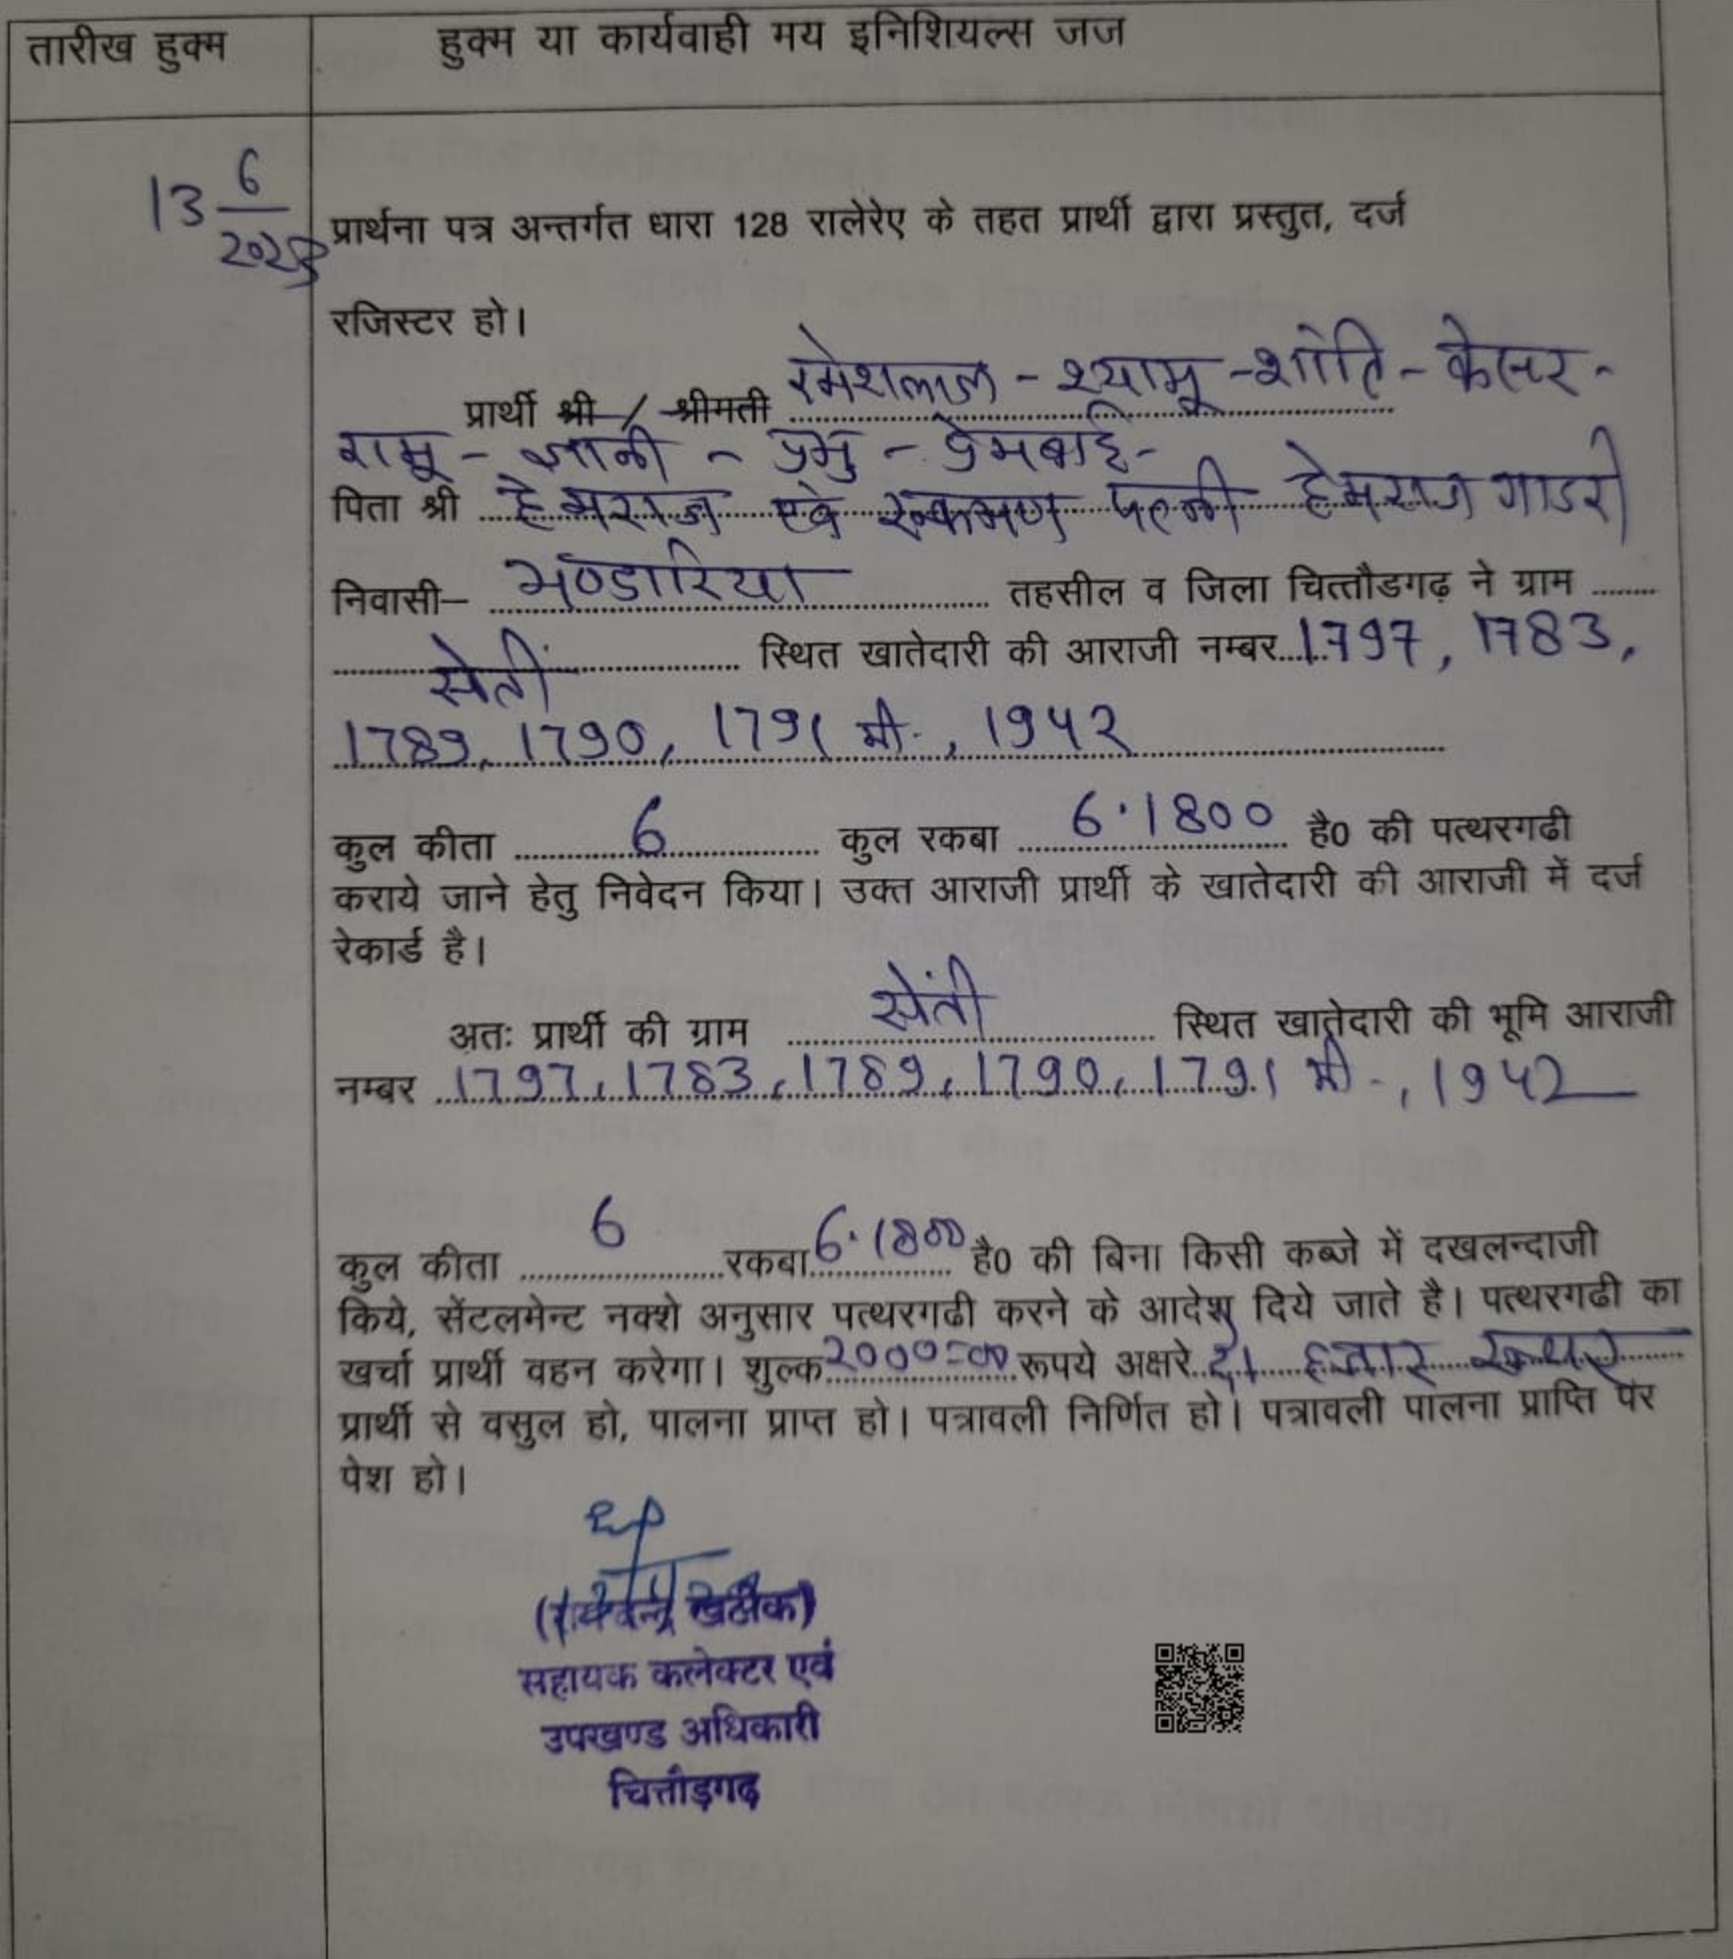 तारीख हुक्म
हुक्म या कार्यवाही मय इनिशियल्स जज
13 6/2023
प्रार्थना पत्र अन्तर्गत धारा 128 रालेरेए के तहत प्रार्थी द्वारा प्रस्तुत, दर्ज
रजिस्टर हो।
प्रार्थी श्री / श्रीमती रमेशलाल - श्यामू - शांति - केसर -
रामू - जानी - प्रभु - प्रेमबाई -
पिता श्री हेमराज एवं रूकमण पत्नी हेमराज गाडरी
निवासी– भण्डारिया तहसील व जिला चित्तौडगढ़ ने ग्राम
सेंती स्थित खातेदारी की आराजी नम्बर 1797, 1783,
1789, 1790, 1791 मी., 1942
कुल कीता 6 कुल रकबा 6.1800 है0 की पत्थरगढी
कराये जाने हेतु निवेदन किया। उक्त आराजी प्रार्थी के खातेदारी की आराजी में दर्ज
रेकार्ड है।
अतः प्रार्थी की ग्राम सेंती स्थित खातेदारी की भूमि आराजी
नम्बर 1797, 1783, 1789, 1790, 1791 मी-, 1942
कुल कीता 6 रकबा 6.1800 है0 की बिना किसी कब्जे में दखलन्दाजी
किये, सेंटलमेन्ट नक्शे अनुसार पत्थरगढी करने के आदेश दिये जाते है। पत्थरगढी का
खर्चा प्रार्थी वहन करेगा। शुल्क 2000=00 रूपये अक्षरे दो हजार रूपए
प्रार्थी से वसुल हो, पालना प्राप्त हो। पत्रावली निर्णित हो। पत्रावली पालना प्राप्ति पर
पेश हो।
खटीक)
सहायक कलेक्टर एवं
उपखण्ड अधिकारी
चित्तौड़गढ़